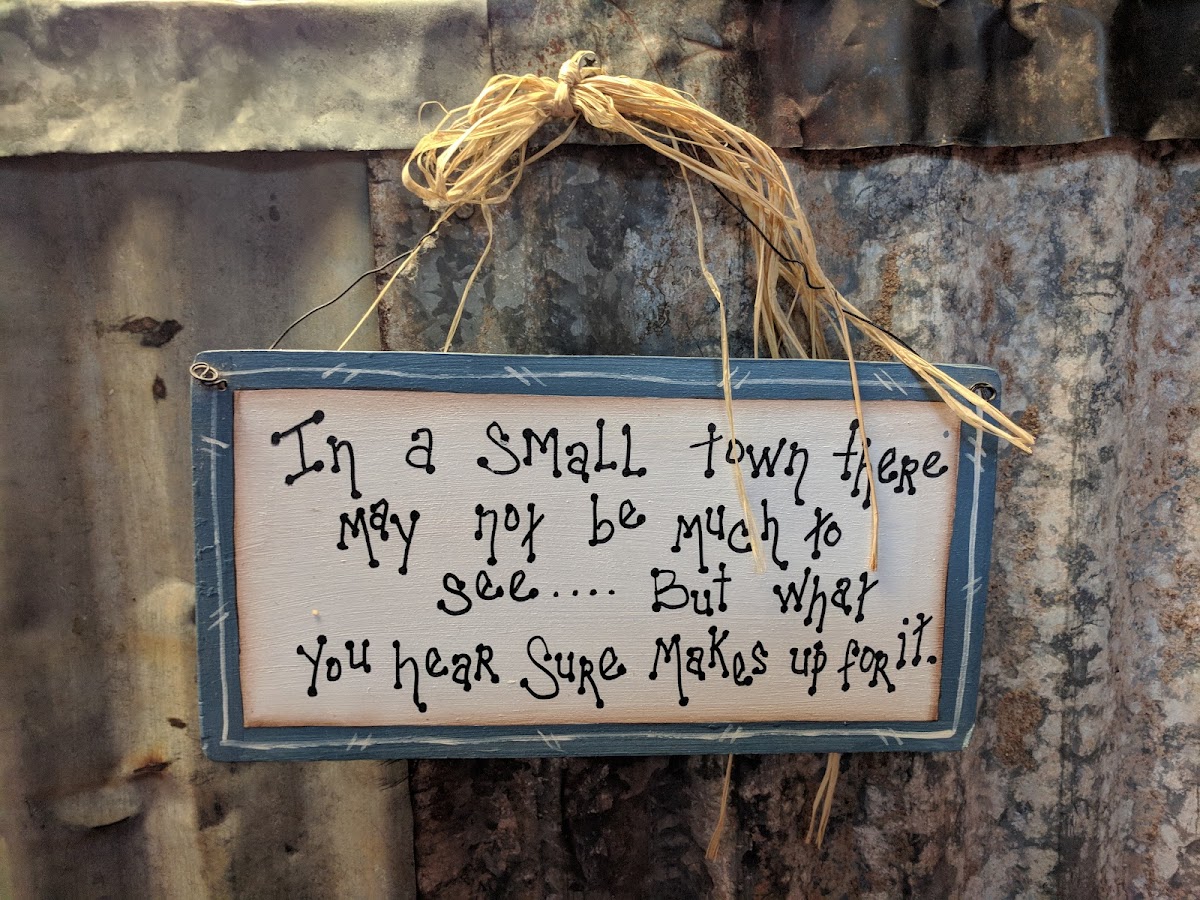 In a small town there
may not be much to
see.... But what
you hear sure makes up for it.